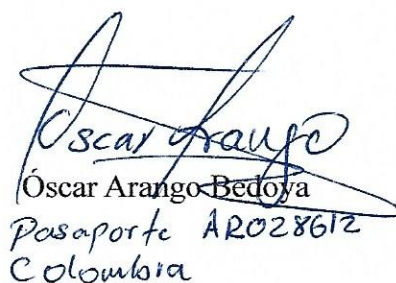 Óscar Arango
Óscar Arango Bedoya
Pasaporte AR028612
Colombia